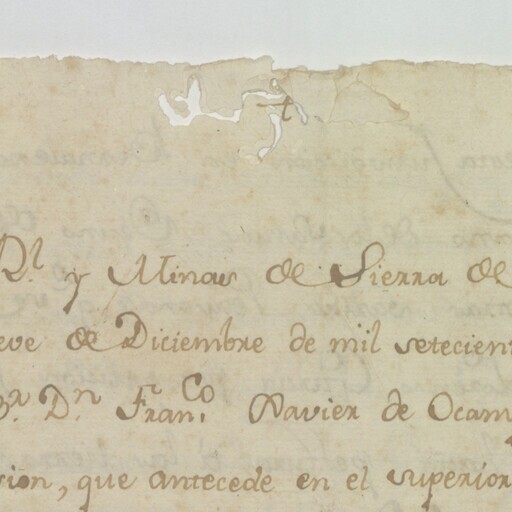 R.l y Minas de Sierra de
eve de Diciembre de mil setecient
Sr. Dn. Fran.co Xavier de Ocam
sion, que antecede en el superior